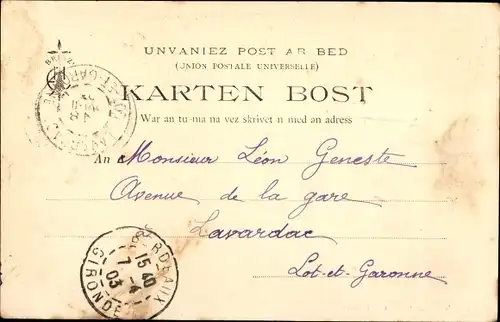 UNVANIEZ POST AR BED
(UNION POSTALE UNIVERSELLE)
KARTEN BOST
War an tu-ma na vez skrivet n med an adress
An Monsieur Léon Geneste
Avenue de la gare
Lavardac
Lot-et-Garonne
BORDEAUX
15 40
7 - 4
03
GIRONDE
LAVARDAC
LOT-ET-GARONNE